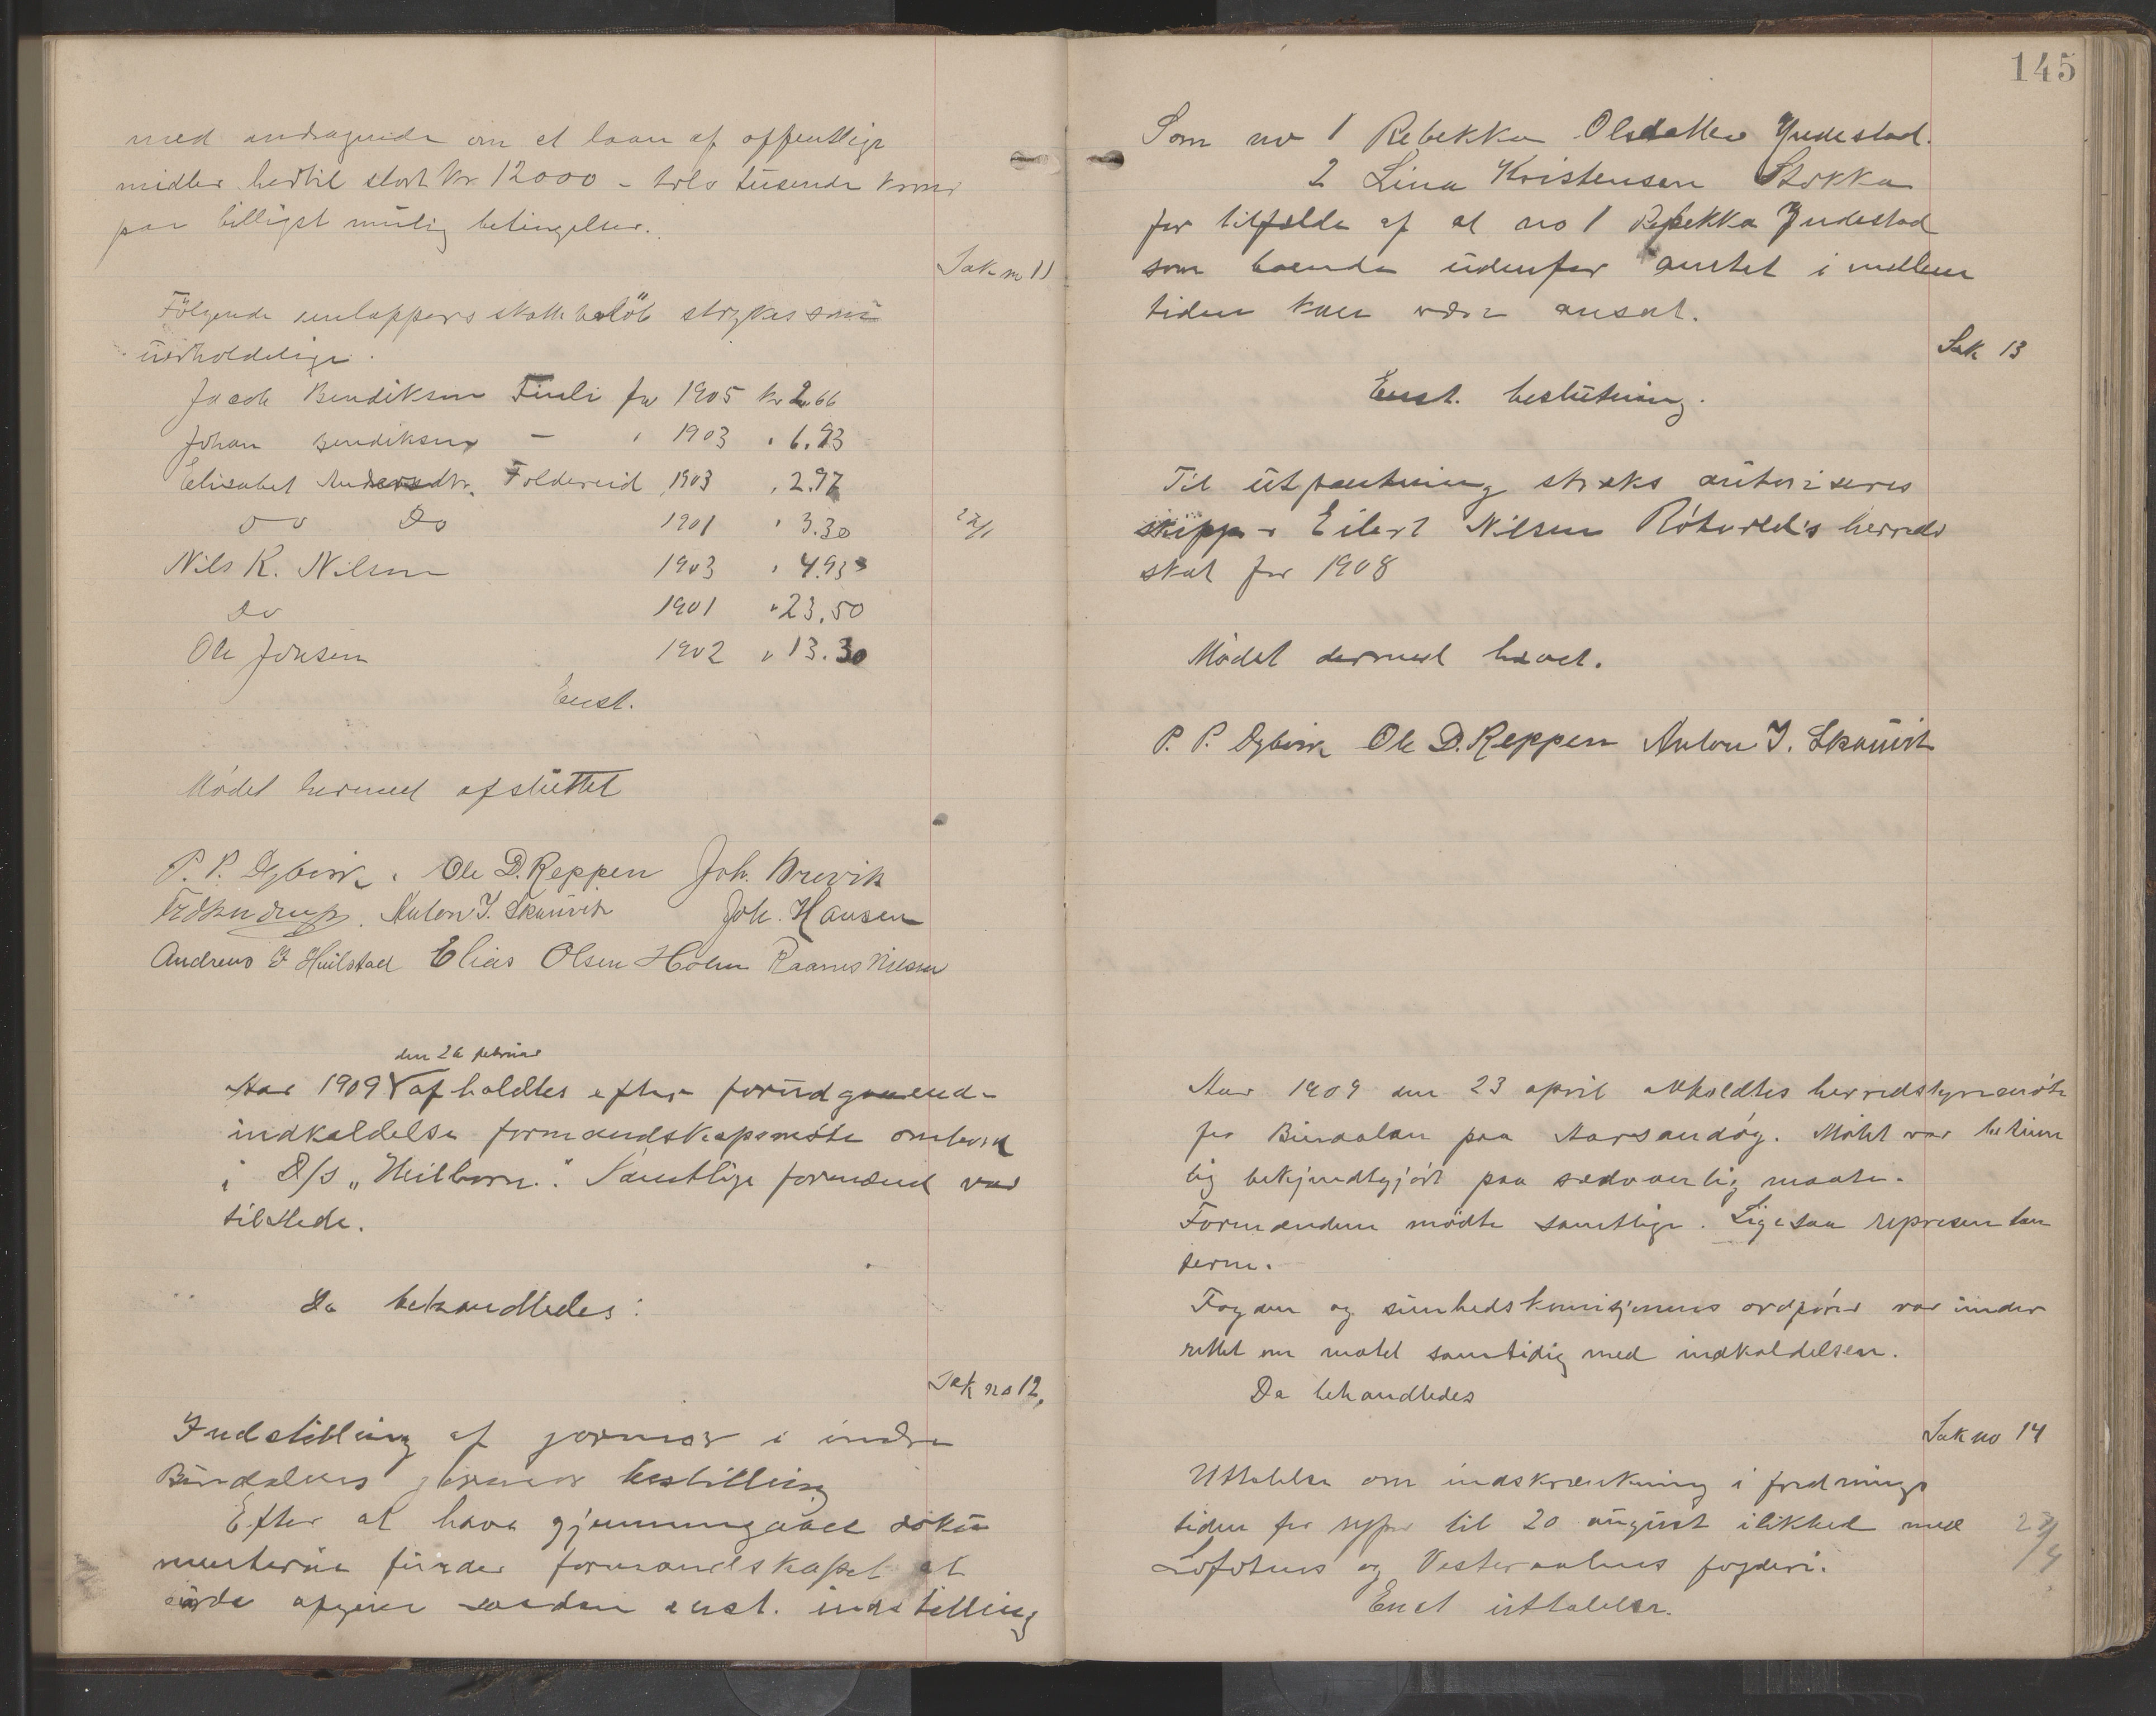 med andragende om et laan af offentlige
midler hertil stort kr. 12000 - tolv tusende kroner
paa billigst mulig betingelser.
Sak no 11
Følgende skattebeløb strykes som
uerholdelige.
Jacob Bendiksen Finli for 1905 kr 2.66
Johan Bendiksen - " 1903 " 6.93
Elisabet Andersdtr. Foldereid 1903 " 2.97
Do Do 1901 " 3.30
Nils R. Nilsen 1903 " 4.93
Do 1901 " 23.50
Ole Jonsen 1902 " 13.30
Enst.
Mødet hermed afsluttet
P. P. Dybvik. Ole D. Reppen Joh. Brevik
Anton J. Skauvik Joh. Hansen
Andreas Huilstad Elias Olsen Holm Raanes Nilsen
den 26 februar
Aar 1909 afholdtes efter forudgaaend-
indkaldelse formandskapsmøte ombord
i D/S „Heilhorn". Samtlige formænd var
tilstede.
Da behandledes:
Sak no 12.
Indstilling af jormor i indre
Bindalens jormor bestilling
Efter at have gjennemgaaet doku
menterne finder formandskapet at
burde afgive saadan enst. indstilling
145
Som no 1 Rebekka Olsdatter Indestad.
2 Lina Kristensen Stokka
for tilfelde af at no 1 Rebekka Indestad
som boende udenfor amtet i mellem
tiden kan være ansat.
Sak 13
Enst. beslutning.
Til utpantning straks autoriseres
skipper Eilert Nilsen herreds
skat for 1908
Mødet dermed hævet.
P. P. Dybvik Ole D. Reppen Anton J. Skauvik
Aar 1909 den 23 april afholdtes herredstyremøte
for Bindalen paa Aarsandøy. Møtet var betime
lig bekjendtgjort paa sedvanlig maate.
Formændene mødte samtlige. Ligesaa represen tan
terne.
Fogden og sunhedskomisjonens ordfører var under
rettet om møtet samtidig med indkaldelsen.
Da behandledes
Sak no 14
Uttalelse om indskrænkning i frednings
tiden for ryper til 20 august i likhed med
Lofotens og Vesteraalens fogderi.
Enst uttalelse.